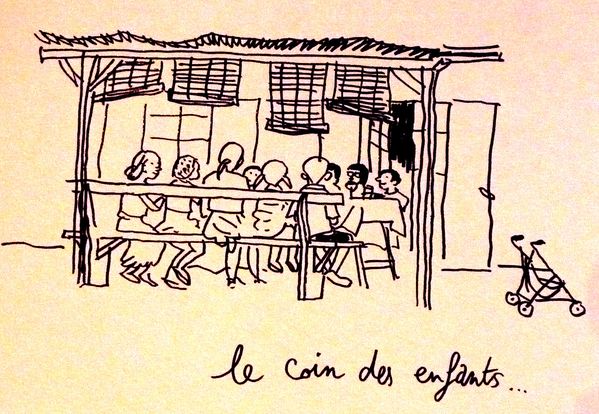 le coin des enfants...